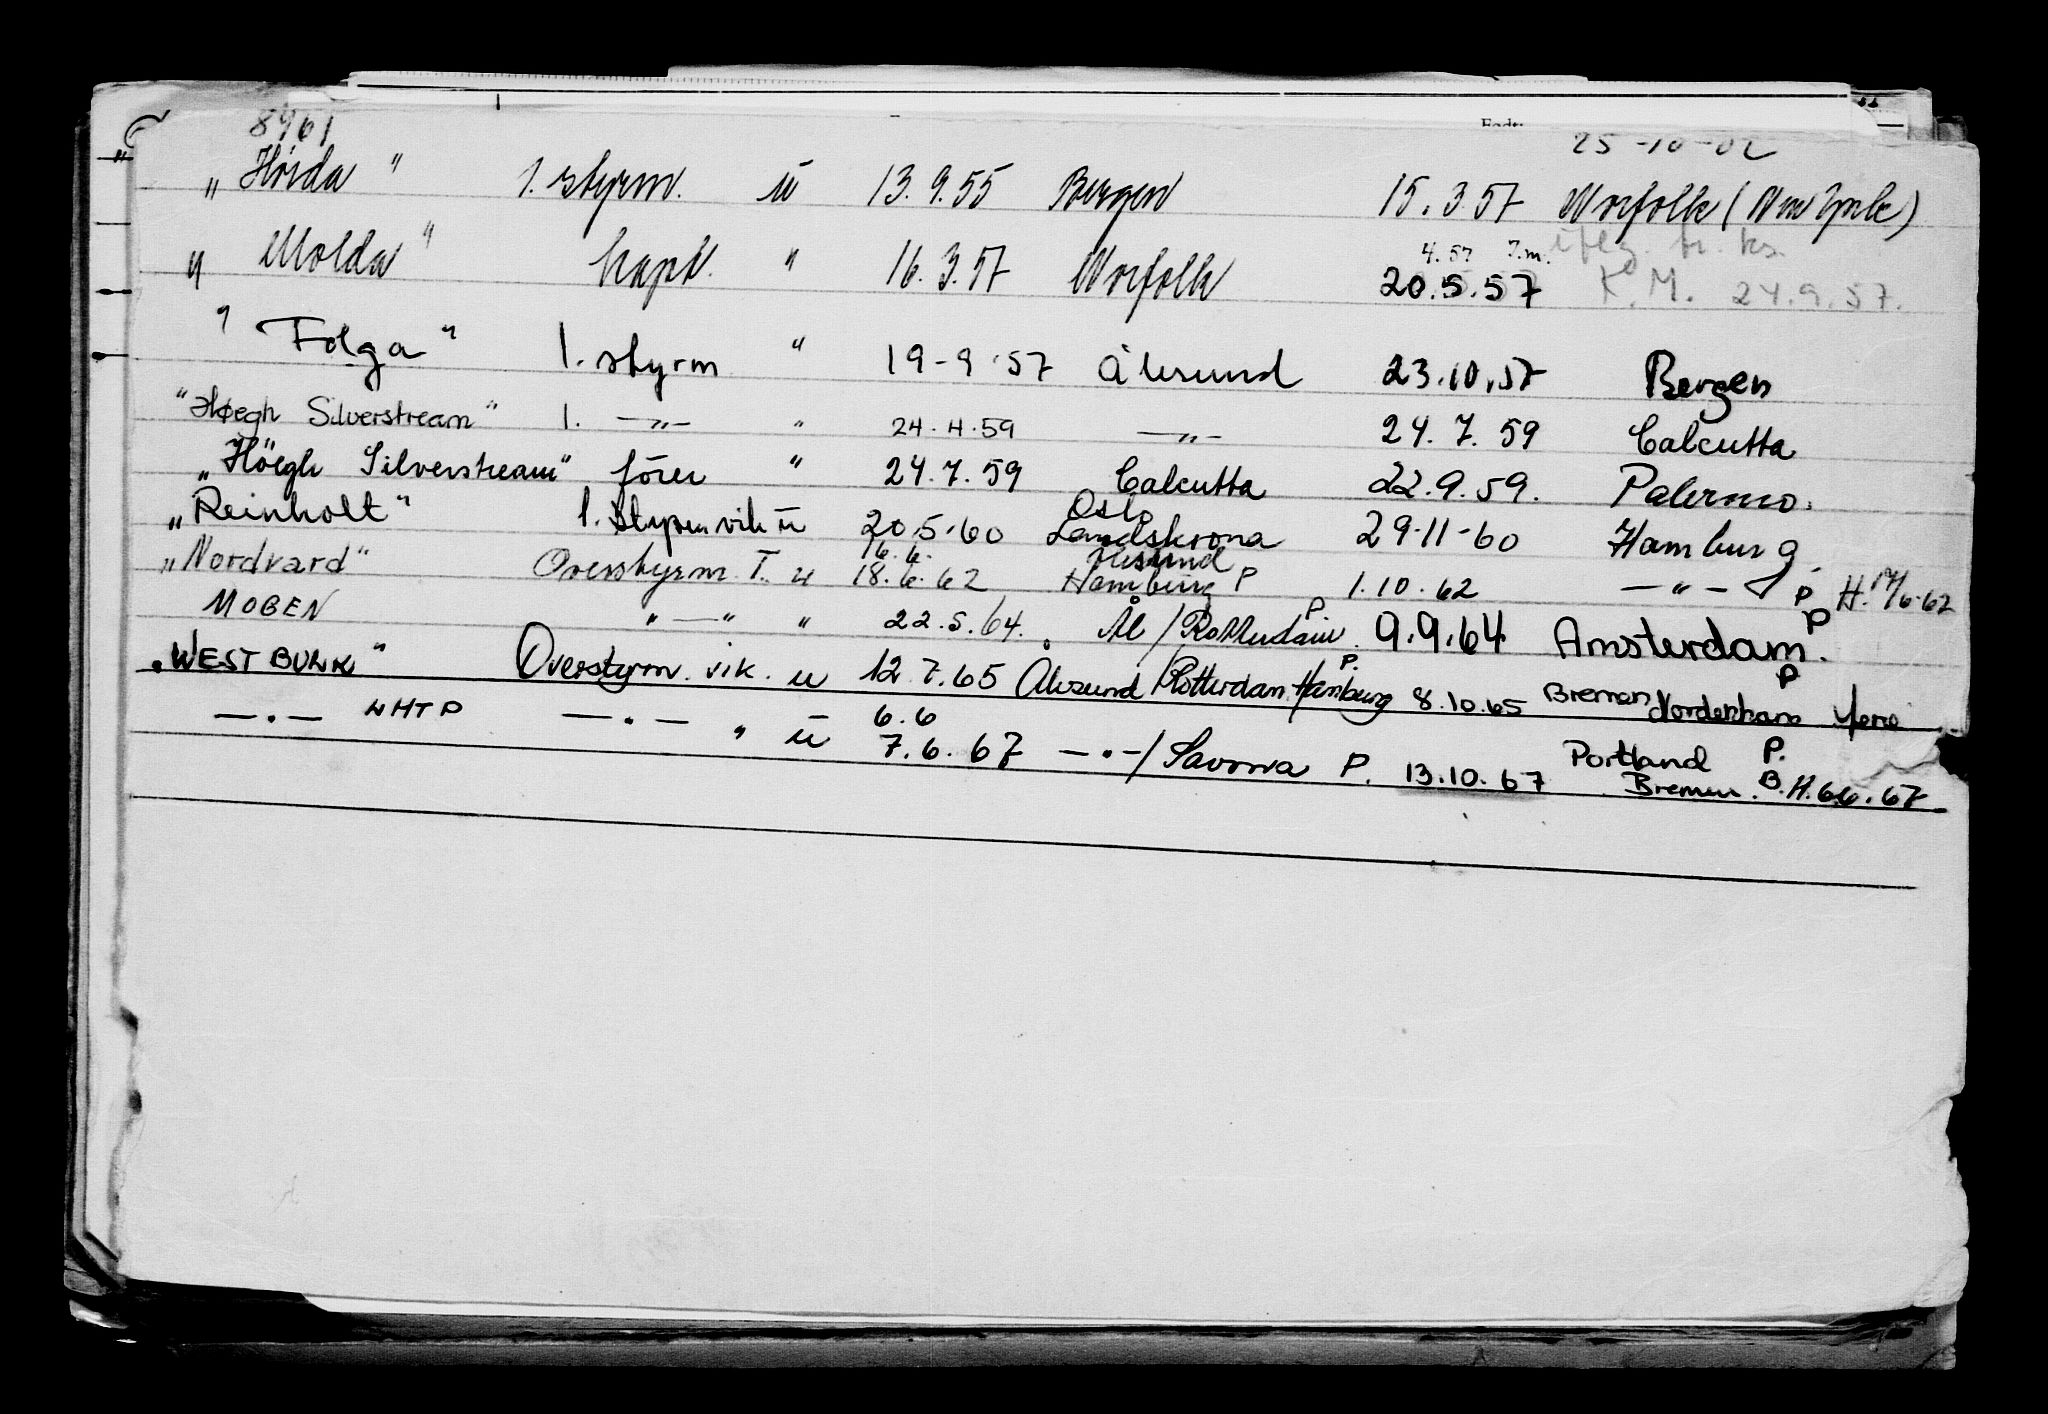 8961 25-10-02
„ Hörda " 1. styrm. u 13.9.55 Bergen 15.3.57 Norfolk (New York)
" Molda " kapt. " 16.3.57 Norfolk 4.57
20.5.57 K.M. 24.9.57.
" Folga " 1. styrm " 19-9-57 Ålesund 23.10.57 Bergen
"Høegh Silverstream" 1. —„— " 24.4.59 —„— 24.7.59 Calcutta
„Höegh Silverstream" förer " 24.7.59 Calcutta 22.9.59. Palermo.
„Reinholt" 1. styrm vik u 20.5.60 Oslo Landskrona 29-11-60 Hamburg
„Nordvard" Overstyrm. T. u 16.6. 18.6.62 Ålesund Hamburg P 1.10.62 —„— P H. 14/6-62
MOBEN " — " " 22.5.64. Ål/Rotterdam P 9.9.64 Amsterdam. P
„WEST BULK" Overstyrm. vik. u 12.7.65 Ålesund/Rotterdam Hamburg P. 8.10.65 Bremen Nordenham P
—.— NHTP —.— " u 6.6 7.6.67 —.—/Savona P. 13.10.67 Portland P.
Bremen. B. H. 6.6.67